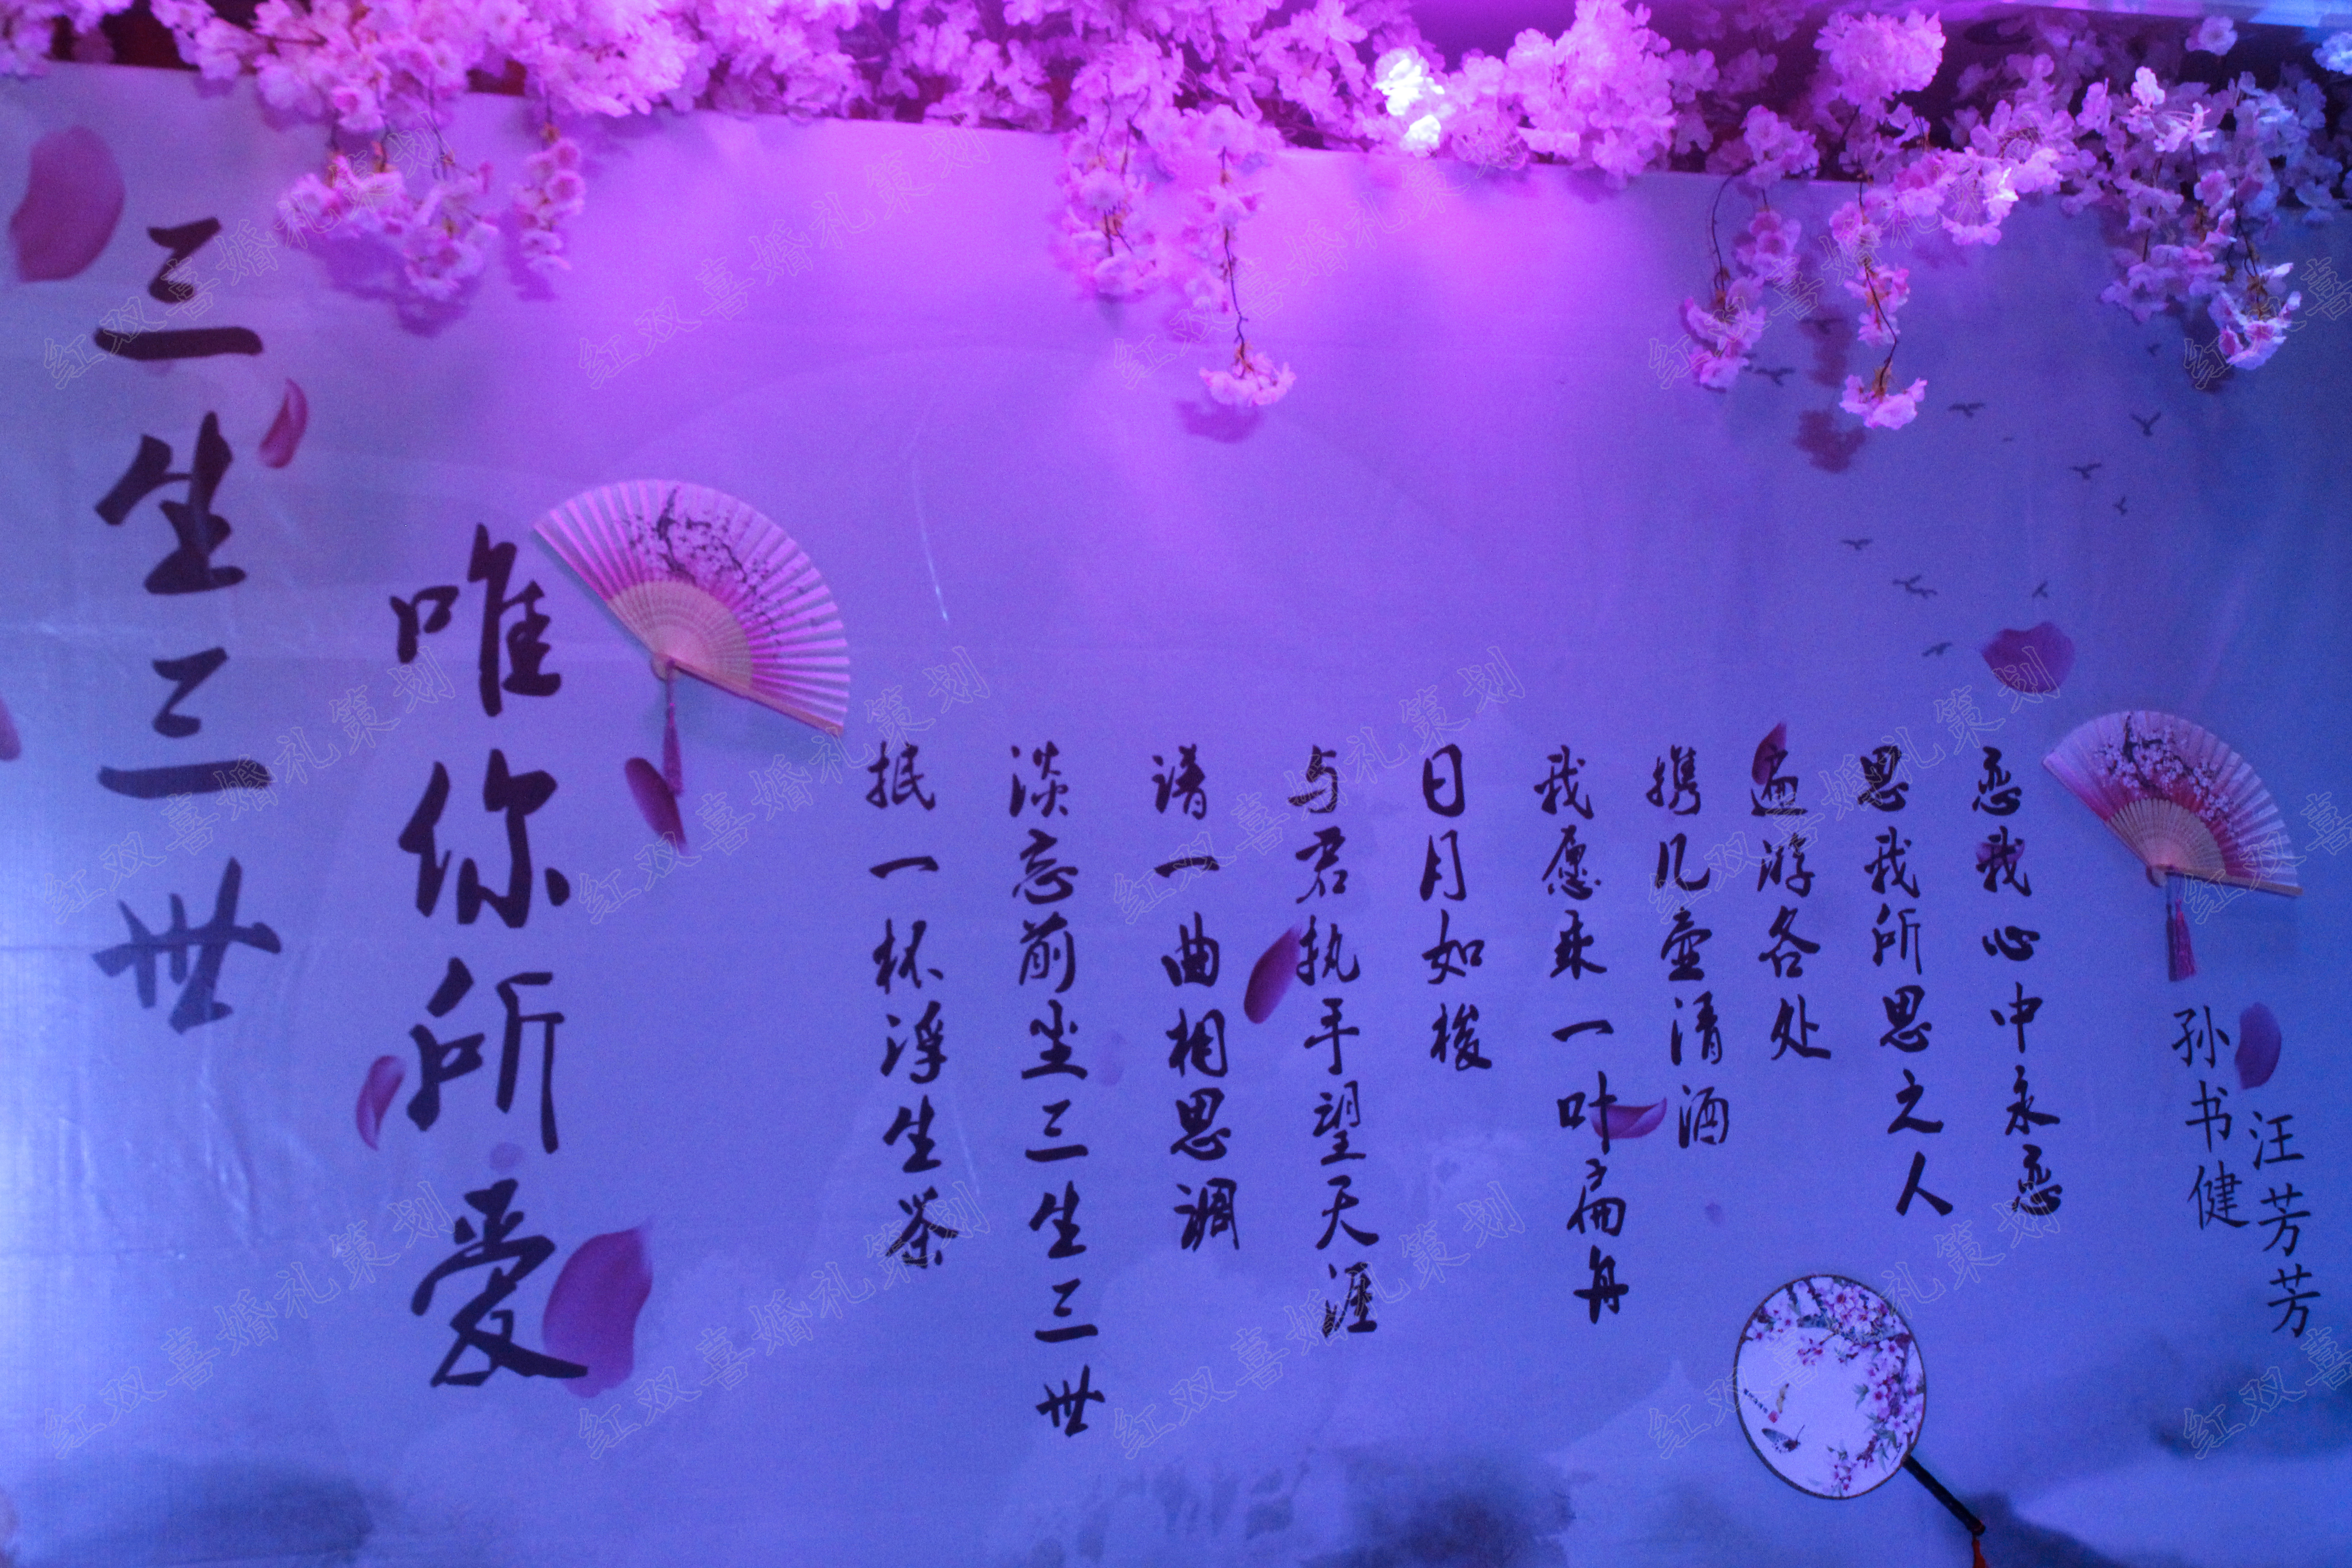 三生三世
唯你所爱
抿一杯浮生茶
淡忘前尘三生三世
请一曲相思调
与君执手望天涯
日月如梭
我愿乘一叶扁舟
携几壶清酒
遍游各处
思我所思之人
恋我心中永恋
孙书健
汪芳芳
红双喜婚礼策划